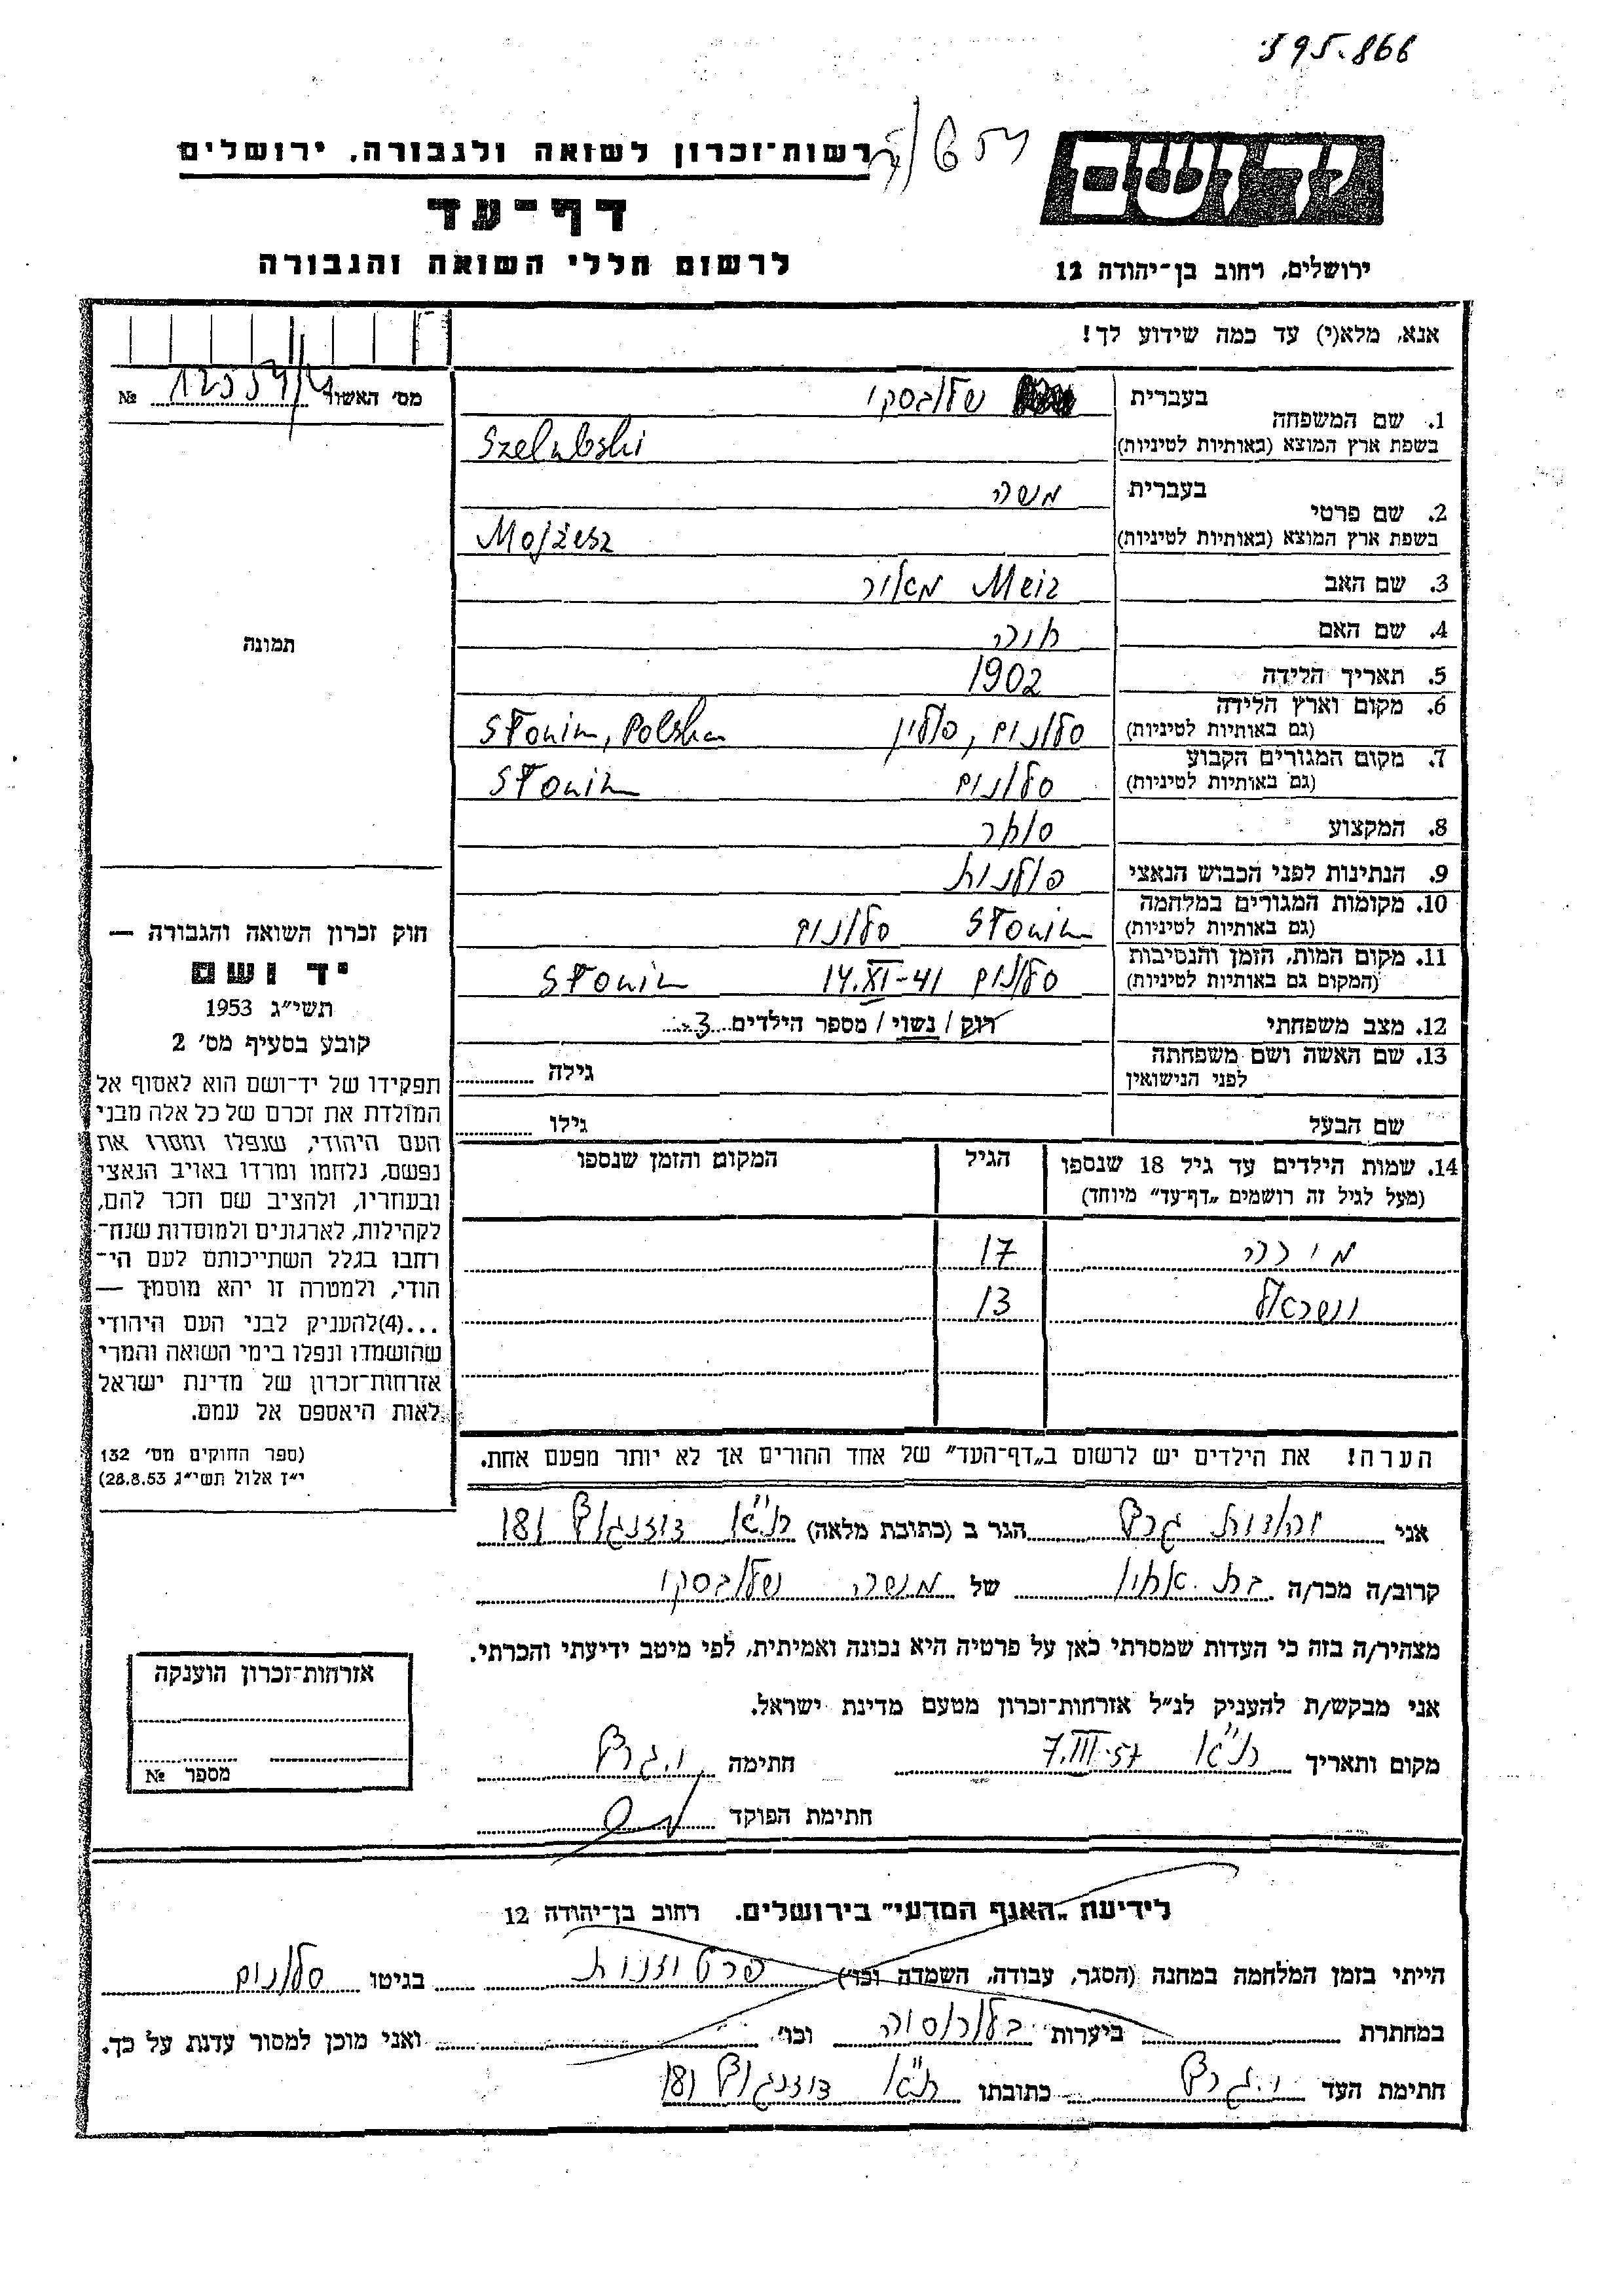 395.866
רשות־זכרון לשואה ולגבורה, ירושלים
דף־עד
לרשום חללי השואה והגבורה
יד ושם
ירושלים, רחוב בן־יהודה 12
אנא, מלא(י) עד כמה שידוע לך!
מס׳ האשור № 12554/4
1. שם המשפחה בעברית שלובסקי
בשפת ארץ המוצא (באותיות לטיניות) Szelubski
2. שם פרטי בעברית משה
בשפת ארץ המוצא (באותיות לטיניות) Mojżesz
3. שם האב Meir מאיר
4. שם האם
5. תאריך הלידה 1902
6. מקום וארץ הלידה (גם באותיות לטיניות) סלונים, פולין Słonim, Polska
7. מקום המגורים הקבוע (גם באותיות לטיניות) סלונים Słonim
8. המקצוע סוחר
9. הנתינות לפני הכבוש הנאצי פולנית
10. מקומות המגורים במלחמה (גם באותיות לטיניות) Słonim סלונים
11. מקום המות, הזמן והנסיבות (המקום גם באותיות לטיניות) סלונים 14.XI-41 Słonim
12. מצב משפחתי רוק / נשוי / מספר הילדים 3
13. שם האשה ושם משפחתה לפני הנישואין גילה
שם הבעל גילו
14. שמות הילדים עד גיל 18 שנספו הגיל המקום והזמן שנספו
(מעל לגיל זה רושמים „דף־עד״ מיוחד)
17
ישראל 13
הערה! את הילדים יש לרשום ב„דף־העד״ של אחד ההורים אך לא יותר מפעם אחת.
תמונה
חוק זכרון השואה והגבורה —
יד ושם
תשי״ג 1953
קובע בסעיף מס׳ 2
תפקידו של יד־ושם הוא לאסוף אל
המולדת את זכרם של כל אלה מבני
העם היהודי, שנפלו ומסרו את
נפשם, נלחמו ומרדו באויב הנאצי
ובעוזריו, ולהציב שם וזכר להם,
לקהילות, לארגונים ולמוסדות שנח־
רבו בגלל השתייכותם לעם הי־
הודי, ולמטרה זו יהא מוסמך —
...(4)להעניק לבני העם היהודי
שהושמדו ונפלו בימי השואה והמרי
אזרחות־זכרון של מדינת ישראל
לאות היאספם אל עמם.
(ספר החוקים מס׳ 132
י״ז אלול תשי״ג 28.8.53)
אני יהודית גרץ הגר ב (כתובת מלאה) ת״א דיזנגוף 181
קרוב/ה מכר/ה בת אחיו של משה שלובסקי
מצהיר/ה בזה כי העדות שמסרתי כאן על פרטיה היא נכונה ואמיתית, לפי מיטב ידיעתי והכרתי.
אני מבקש/ת להעניק לנ״ל אזרחות־זכרון מטעם מדינת ישראל.
מקום ותאריך ת״א 7.III-57 חתימה י. גרץ
חתימת הפוקד
אזרחות־זכרון הוענקה
מספר №
לידיעת „האגף המדעי״ בירושלים. רחוב בן־יהודה 12
הייתי בזמן המלחמה במחנה (הסגר, עבודה, השמדה וכו׳) פרטיזנית בגיטו סלונים
במחתרת ביערות בילורוסיה וכו׳ ואני מוכן למסור עדנת על כך.
חתימת העד י. גרץ כתובתו ת״א דיזנגוף 181